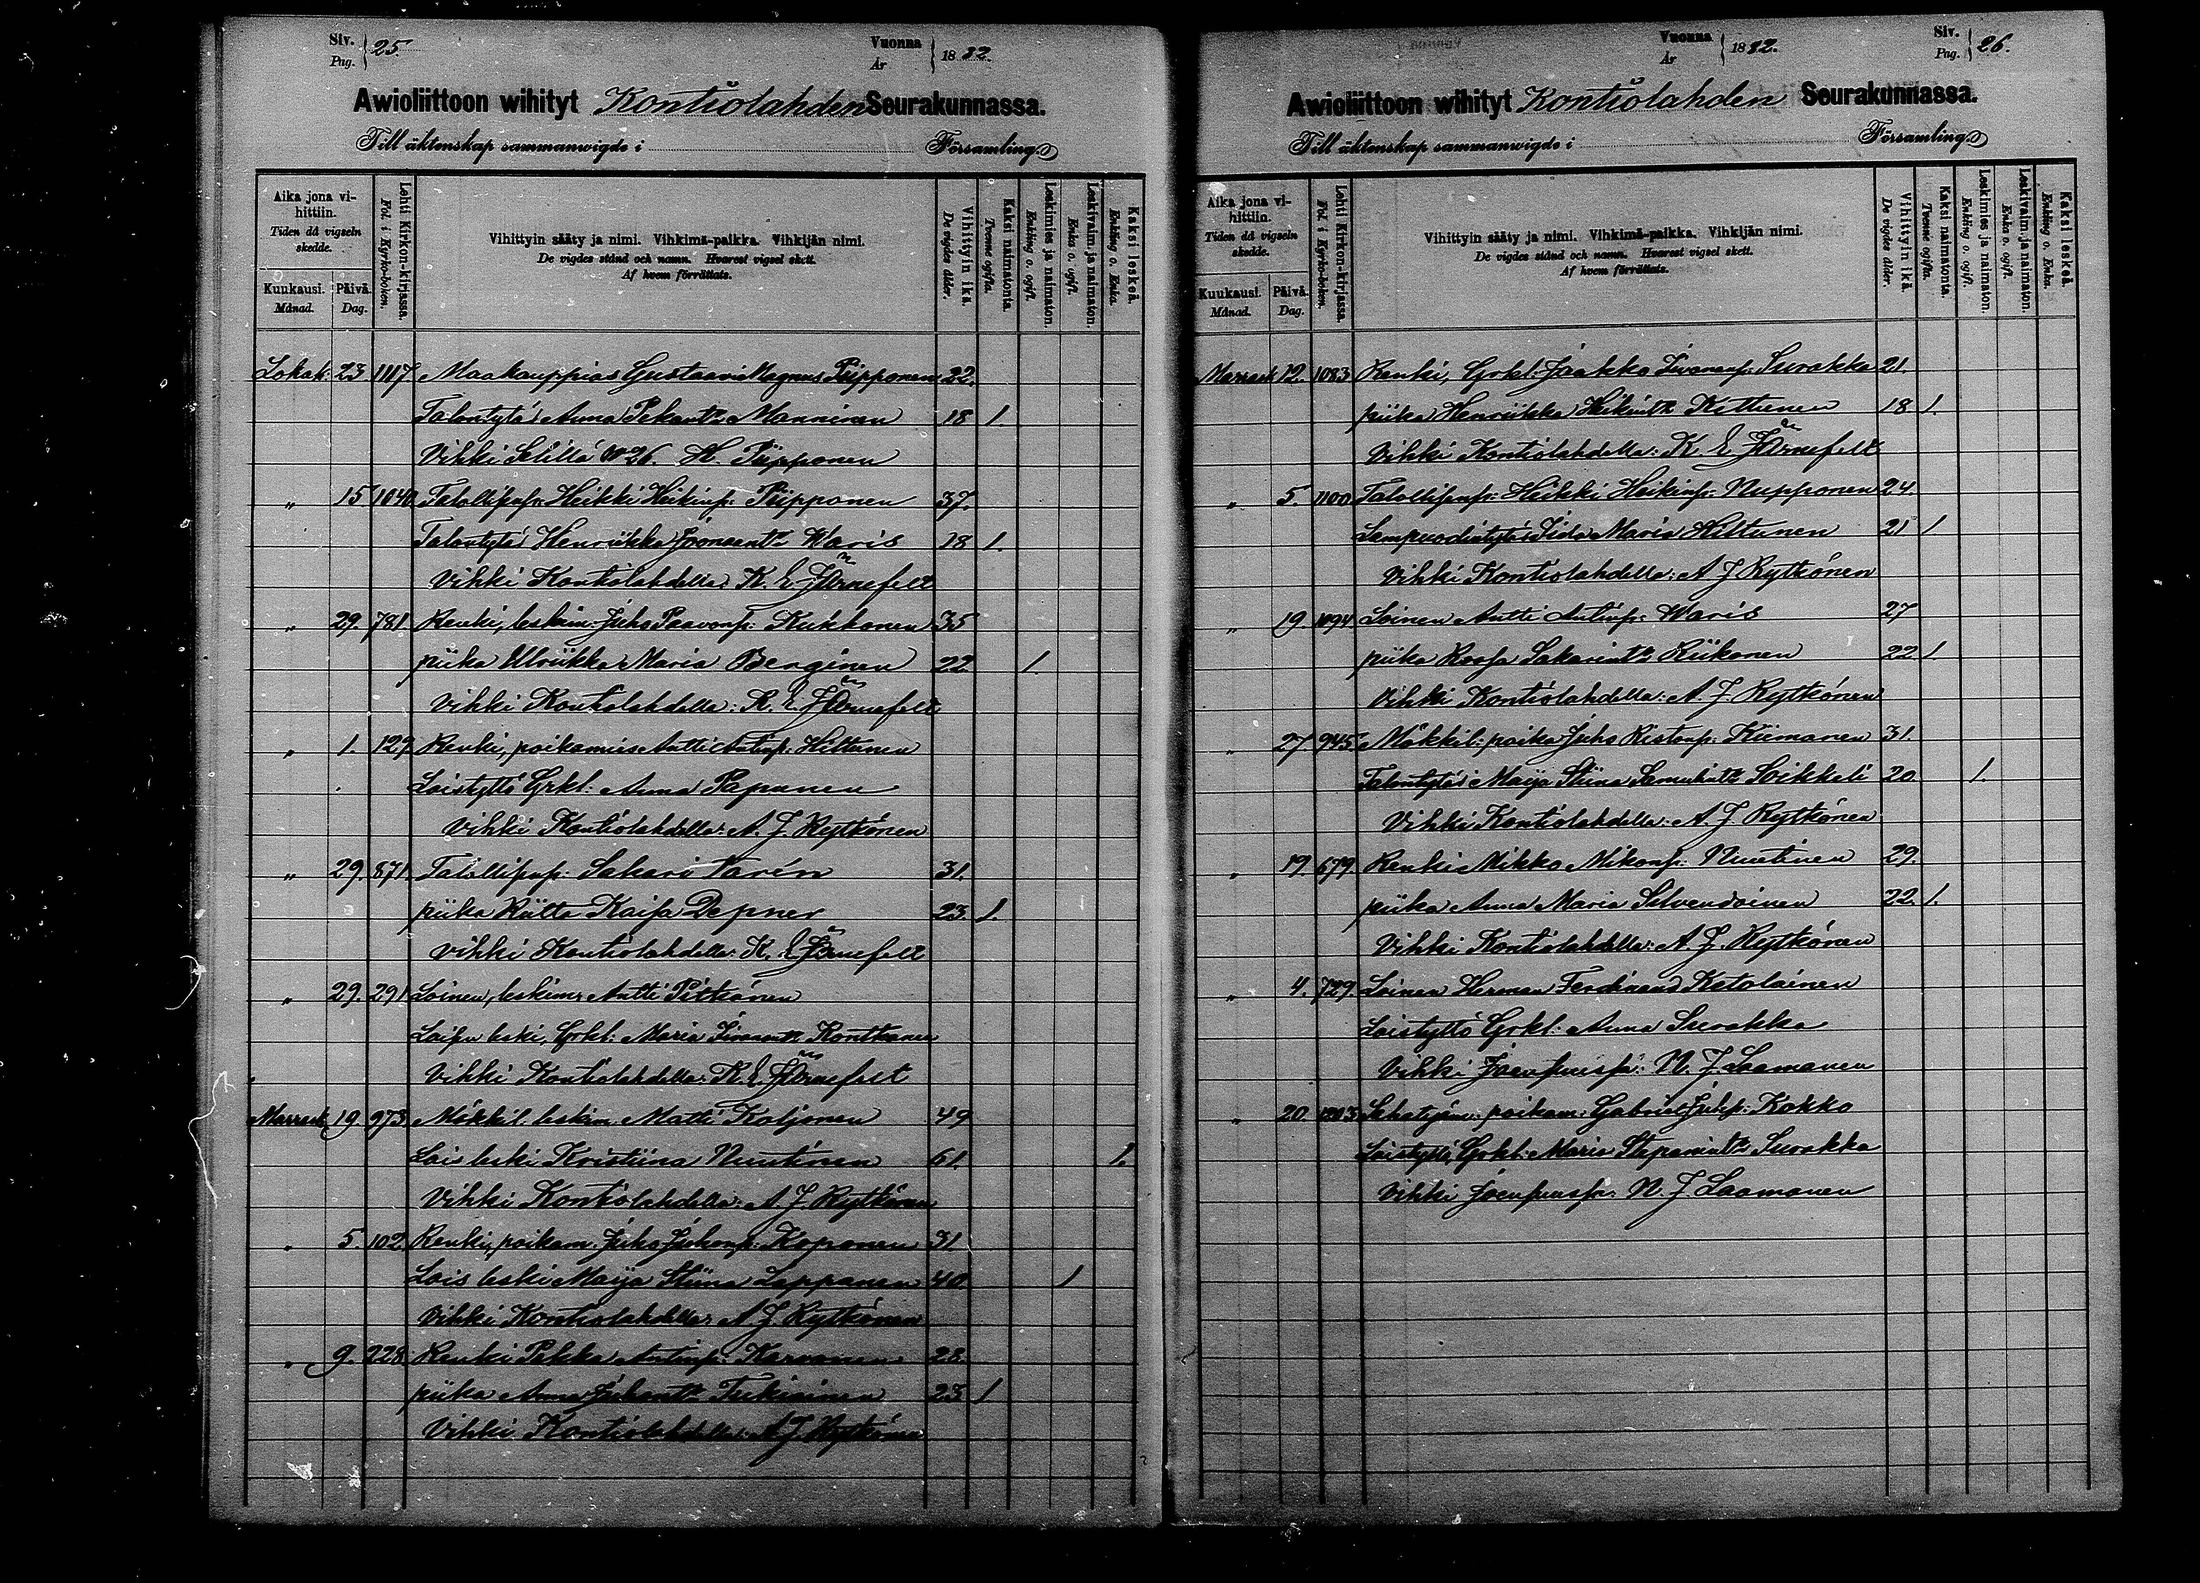 Siv. Pag. } 25.
Vuonna År } 1882.
Awioliittoon wihityt Kontiolahden Seurakunnassa.
Till äktenskap sammanwigde i Församling.
Aika jona vihittiin. Tiden då vigseln skedde.
Kuukausi. Månad.
Päivä. Dag.
Lehti Kirkon-kirjassa. Fol. i Kyrko-boken.
Vihittyin sääty ja nimi. Vihkimä-paikka. Vihkijän nimi.
De vigdes stånd och namn. Hvarest vigsel skett.
Af hvem förrättats.
Vihittyin ikä. De vigdes ålder.
Kaksi naimatonta. Tvenne ogifta.
Leskimies ja naimaton. Enkling o. ogift.
Leskivaim. ja naimaton. Enka o. ogift.
Kaksi leskeä. Enkling o. Enka.
Lokak. 23 1117 Maakauppias Gustaavi Magnus Piipponen 22.
Talontytä Anna Pekant. Manninen 18 1.
Vihki H. Piipponen
„ 15 1040 Talollisp. Heikki Heikinp: Piipponen 37.
Talontytä Henriikka Joonaant. Waris 18 1.
Vihki Kontiolahdella: K. E. Järnefelt
„ 29. 781 Renki, leskim. Juho Paavonp: Kukkonen 35
piika Ulriikka Maria Berginen 22. 1.
Vihki Kontiolahdella: K. E. Järnefelt
„ 1. 129 Renki, poikamies Antti Antinp: Hiltunen
Loistyttö Grkl: Anna Papunen
Vihki Kontiolahdella: A. J. Rytkönen
„ 29. 871. Talollisp: Sakari Narén 31.
piika Riitta Kaisa Depner 23. 1.
Vihki Kontiolahdella: K. E. Järnefelt
„ 29. 291 Loinen, leskim. Antti Pitkänen
Loisen leski, Grkl: Maria Iivanant. Kontkanen
Vihki Kontiolahdella: K. E. Järnefelt
Marrask. 19. 973. Mökkil. leskim. Matti Koljonen 49
Lois leski Kristiina Nuutinen 61. 1.
Vihki Kontiolahdella: A. J. Rytkönen
„ 5. 102 Renki, poikam. Juho Juhonp: Koponen 31
Lois leski Maija Stiina Lappanen 40. 1
Vihki Kontiolahdella: A J Rytkönen
„ 9. 228 Renki Pekka Antinp: Karvonen 28.
piika Anna Juhant. Tukiainen 23 1
Vihki Kontiolahdella: A J Rytkönen
Vuonna År } 1882.
Siv. Pag. } 26.
Awioliittoon wihityt Kontiolahden Seurakunnassa.
Till äktenskap sammanwigde i Församling.
Aika jona vihittiin. Tiden då vigseln skedde.
Kuukausi. Månad.
Päivä. Dag.
Lehti Kirkon-kirjassa. Fol. i Kyrko-boken.
Vihittyin sääty ja nimi. Vihkimä-paikka. Vihkijän nimi.
De vigdes stånd och namn. Hvarest vigsel skett.
Af hvem förrättats.
Vihittyin ikä. De vigdes ålder.
Kaksi naimatonta. Tvenne ogifta.
Leskimies ja naimaton. Enkling o. ogift.
Leskivaim. ja naimaton. Enka o. ogift.
Kaksi leskeä. Enkling o. Enka.
Marrask 12. 1083 Renki, Grkl: Jaakko Iivananp: Surakka 21.
piika Henriikka Heikint. Kettunen 18 1.
Vihki Kontiolahdella: K. E. Järnefelt
„ 5. 1100 Talollisp: Heikki Heikinp: Nupponen 24.
Lampuodintytä Iida Maria Hiltunen 21 1.
Vihki Kontiolahdella: A J Rytkönen
„ 19 1094 Loinen Antti Antinp: Waris 27
piika Roosa Sakarint. Riikonen 22 1.
Vihki Kontiolahdella: A. J. Rytkönen
„ 27 945 Mökkil: poika Juho Ristonp: Kiimanen 31.
Talontytä Maija Stiina Samulint. Soikkeli 20 1.
Vihki Kontiolahdella: A. J. Rytkönen
„ 19. 679. Renki Mikko Mikonp: Nuutinen 29.
piika Anna Maria Silvendoinen 22. 1.
Vihki Kontiolahdella: A. J. Rytkönen
„ 4. 729. Loinen Herman Ferdinand Katolainen
Loistyttö Grkl: Anna Surakka
Vihki Joensuussa: N. J. Laamanen
„ 20. 1203 poikam: Gabriel Juhp: Kokko
Loistyttö, Grkl: Maria Stepanint. Surakka
Vihki Joensuussa: N. J. Laamanen